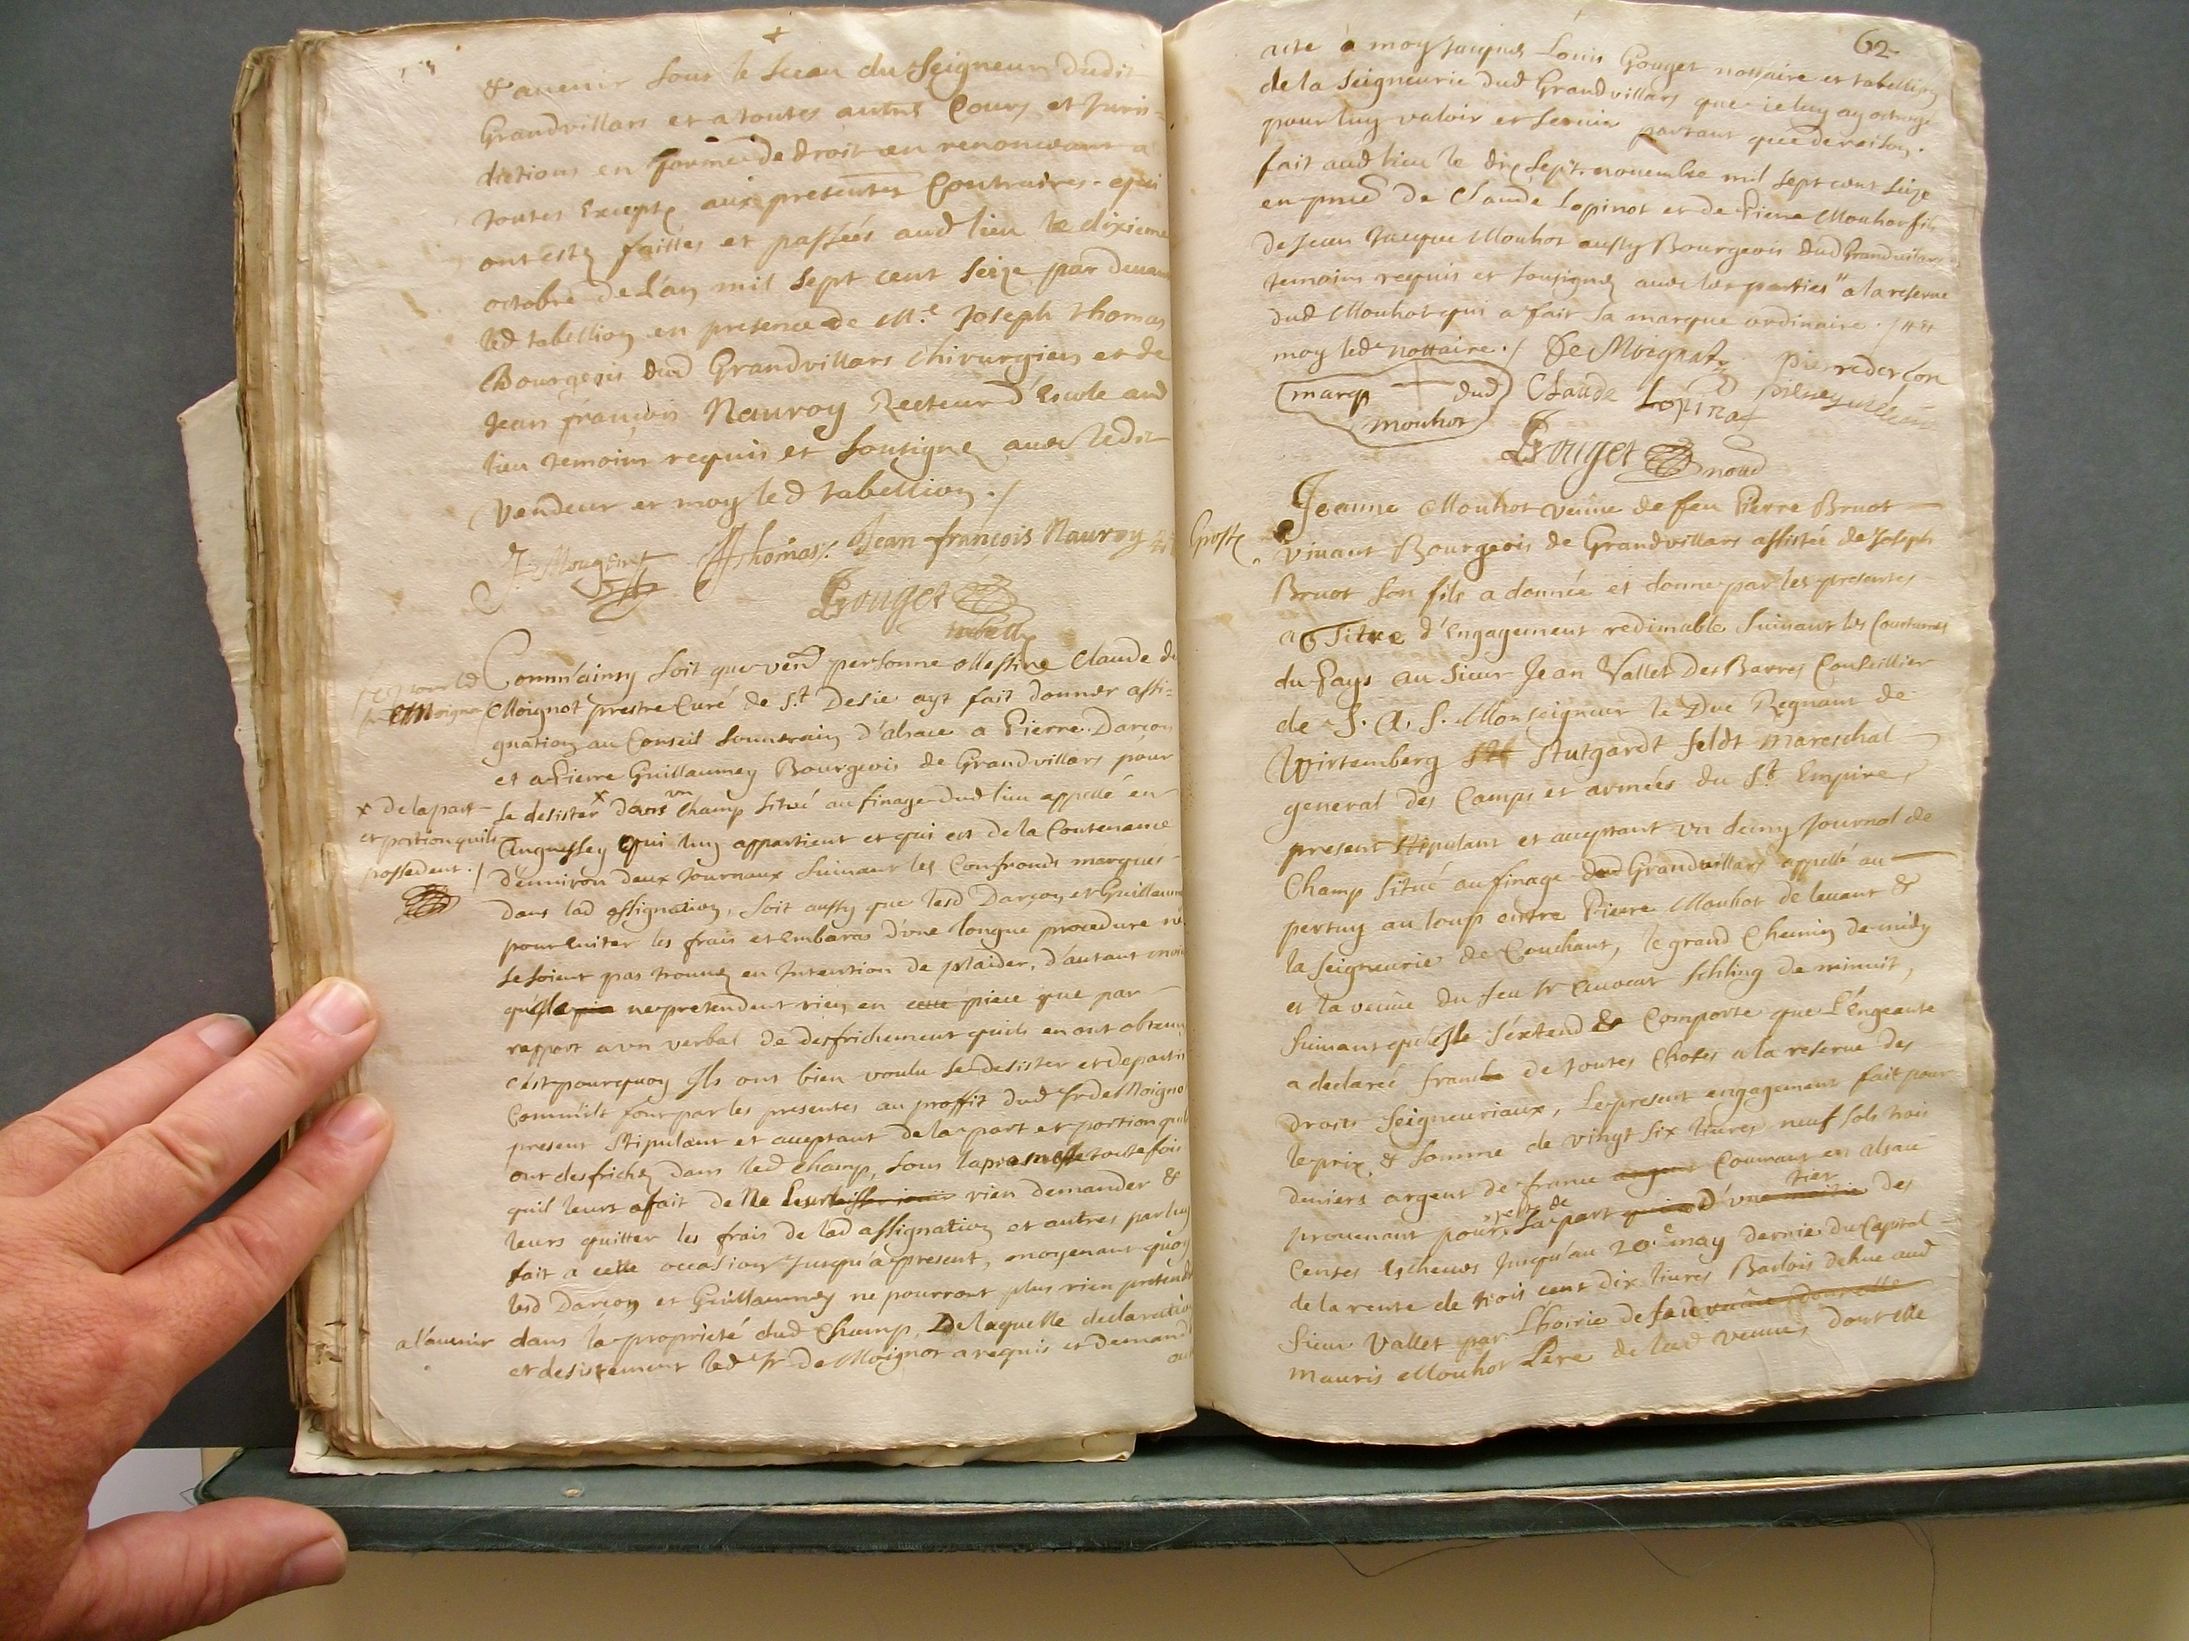 & avenir sous le sceau du Seigneur dudit
Grandvillars et a toutes autres Cours et Juris=
dictions en forme de droit en renonceant a
toutes Exceptz aux presentes Contraires. qui
ont estez faittes et passées aud lieu le dixieme
octobre de l'an mil sept cent seize par devant
led tabellion en presence de M.e Joseph thomas
Bourgeois dud Grandvillars chirurgien et de
Jean françois Nauroy Recteur d'Escole aud
lieu temoins requis et soussignez avec ledit
Vendeur et moy led tabellion ./
J: Mougenot JJ thomas: Jean francois Nauroy
Gouget
tabell
Comm'ainsy soit que ven.d personne Messire Claude de
Moignot prestre Curé de S.t Desie ayt fait donner assi=
gnation au Conseil souverain d'alsace a Pierre Darcon
et a Pierre Guillaumey Bourgeois de Grandvillars pour
se desister x d'un champ situé au finage dud lieu appellé en
x de la part
et portion quils
possedent ./
qui luy appartient et qui est de la Contenance
d'environ deux Journaux suivant les Confronds marqués
dans lad assignation, soit aussy que lesd Darcon et Guillaume
pour Eviter les frais et Embaras d'une longue procedure ne
se soient pas trouvez en Intention de plaider, d'autant moin
ne pretendent rien en cette piece que par
rapport a un verbal de desfrichement quils en ont obtenu
c'est pourquoy Ils ont bien voulu se desister et departir
Comm'ils font par les presentes au proffit dud Sr de Moignot
present stipulant et acceptant de la part et portion quils
ont desfrichez dans led champ, sous la promesse toutefois
quil leurs a fait de Ne Leur laisser jouir rien demander &
leurs quitter les frais de lad assignation et autres par luy
fait a cette occasion jusqu'a present, moyenant quoy
lesd Darcon et Guillaumey ne pourront plus rien pretendre
a l'avenir dans la proprieté dud Champ, De laquelle declaration
et desistement led Sr de Moignot a requis et demandé
62
acte a moy Jacques Louis Gouget nottaire et tabellion
de la Seigneurie dud Grandvillars que je luy ay octroyé
pour luy valoir et servir partant que de raison.
fait aud lieu le dix sept novembre mil sept cent seize
en pnce De Claude Lopinot et de Pierre Mouhot fils
de Jean Jacque Mouhot aussy Bourgeois dud Grandvillars
temoins requis et soussignez avec les parties " a la reserve
dud Mouhot qui a fait sa marque ordinaire ./ " et
moy led nottaire ./ De Moignot pierre dercon
marq dud Claude Lopinot
mouhot
Gouget
Grosse
Jeanne Mouhot veuve de feu Pierre Bruot
vivant Bourgeois de Grandvillars assistée de Joseph
Bruot son fils a donnée et donne par les presentes
a Titre d'Engagement redimable suivant les Coutumes
du Pays au Sieur Jean Vallet Des Barres Conseillier
de S. A. S. Monseigneur le Duc Regnant de
Wirtemberg Stutgardt feldt mareschal
general des Camps et armées du S.t Empire,
present stipulant et acceptant un demy Journal de
Champ situé au finage dud Grandvillars appellé au
pertuy au loup entre Pierre Mouhot de levant &
la Seigneurie de Couchant, le grand Chemin de midy
et la veuve du feu Sr avocat schling de minuit,
suivant qu'elle s'extend & Comporte que L'Engeante
a declareé franche de toutes Choses a la reserve des
droits Seigneuriaux, Le present engagement fait pour
le prix & somme de vingt six livres neuf sols trois
deniers argent de france argent Courant en alsace
provenant pour reste de sa part d'un tier des
Censes Escheues Jusqu'au 20.e may dernier du Capital
de la rente de trois cent dix livres Balois dehue aud
Sieur Vallet par Lhoirie de feu
mauris Mouhot Pere de lad veuve, dont elle